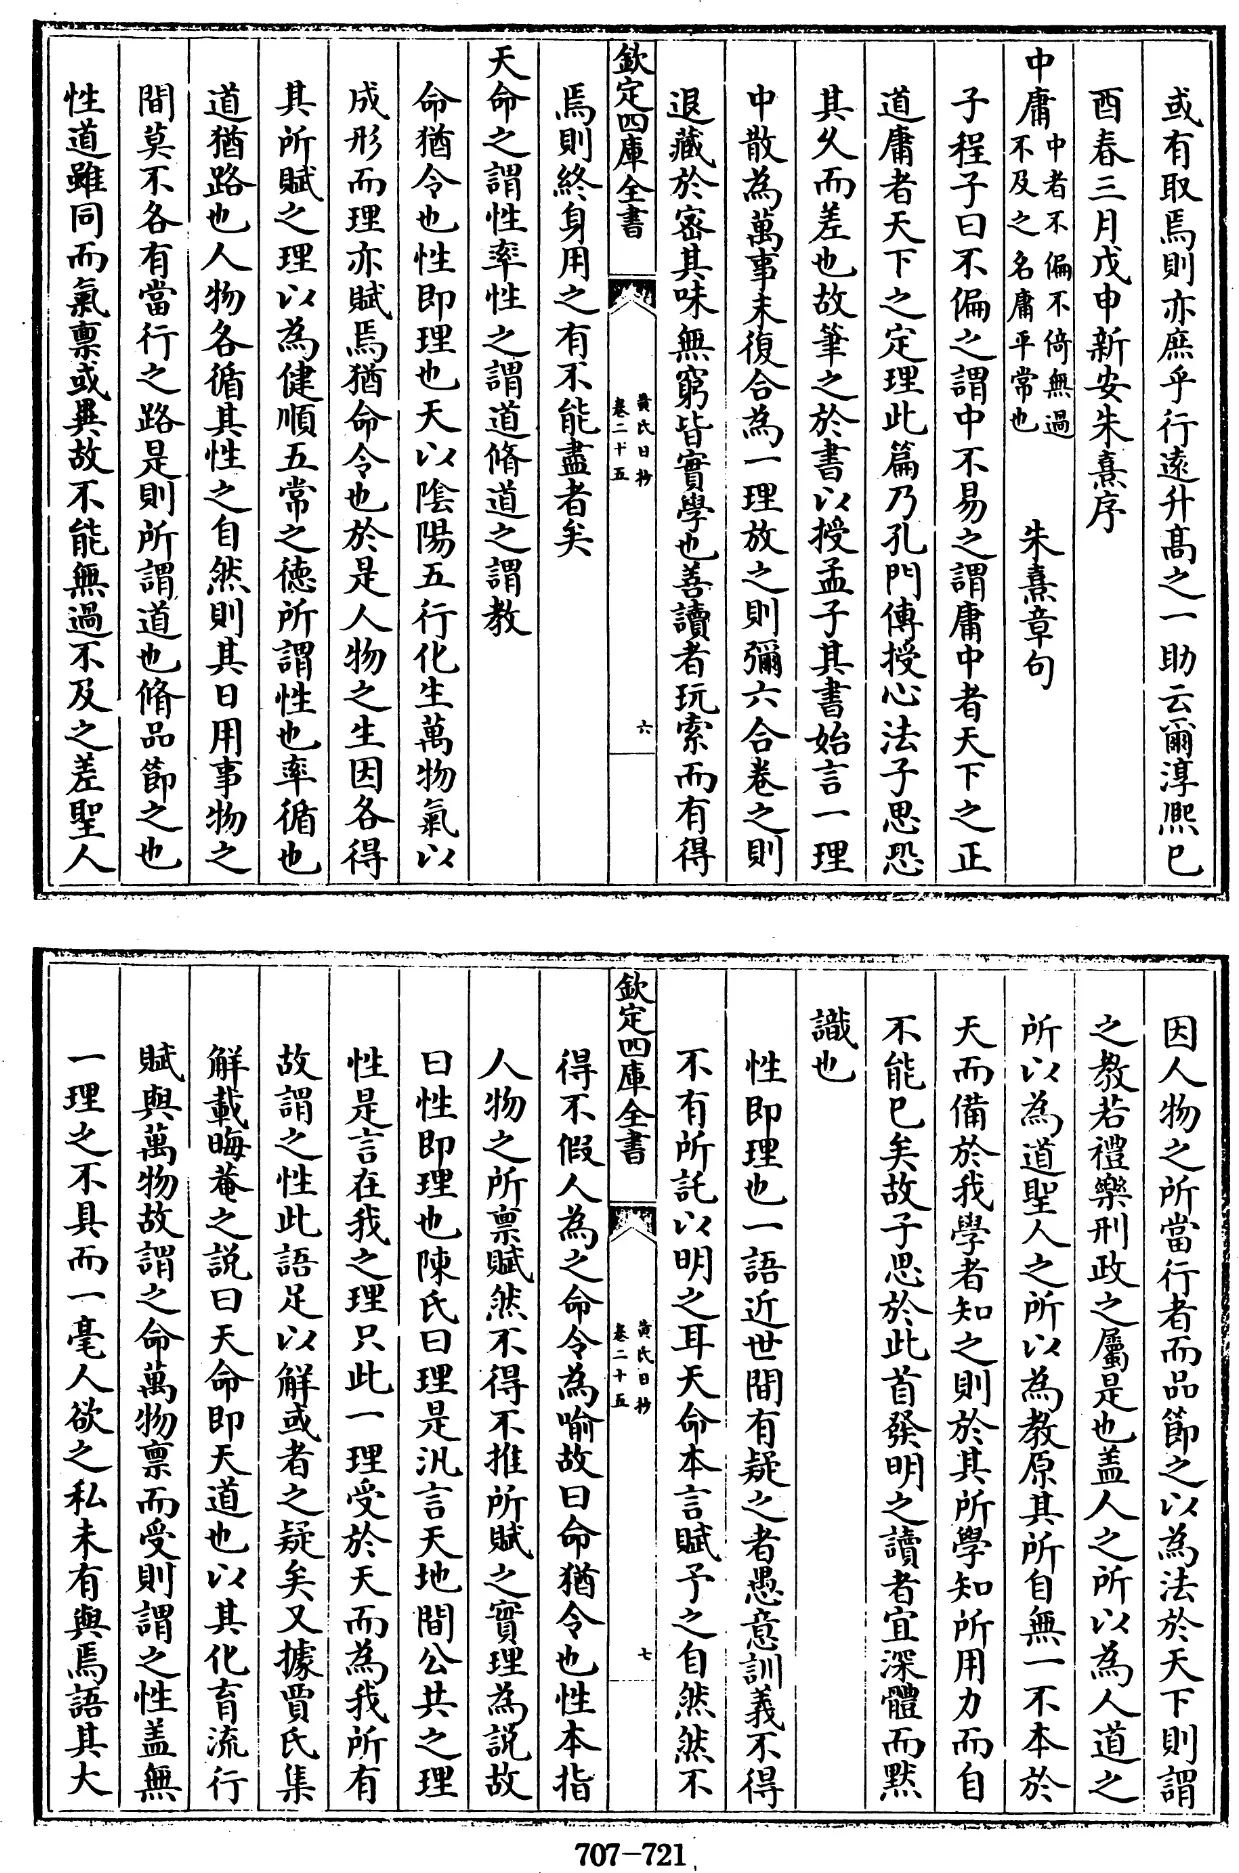 或有取焉則亦庶乎行遠升髙之一助云爾淳熈巳
酉春三月戊申新安朱熹序
中庸中者不偏不倚無過不及之名庸平常也 朱熹章句
子程子曰不偏之謂中不易之謂庸中者天下之正
道庸者天下之定理此篇乃孔門傳授心法子思恐
其乆而差也故筆之於書以授孟子其書始言一理
中散為萬事末復合為一理放之則彌六合卷之則
退藏於宻其味無窮皆實學也善讀者玩索而有得
欽定四庫全書 黃氏日抄 卷二十五 六
焉則終身用之有不能盡者矣
天命之謂性率性之謂道脩道之謂教
命猶令也性即理也天以陰陽五行化生萬物氣以
成形而理亦賦焉猶命令也於是人物之生因各得
其所賦之理以為健順五常之徳所謂性也率循也
道猶路也人物各循其性之自然則其日用事物之
間莫不各有當行之路是則所謂道也脩品節之也
性道雖同而氣禀或異故不能無過不及之差聖人
因人物之所當行者而品節之以為法於天下則謂
之教若禮樂刑政之屬是也盖人之所以為人道之
所以為道聖人之所以為教原其所自無一不本於
天而備於我學者知之則於其所學知所用力而自
不能已矣故子思於此首發明之讀者宜深體而黙
識也
性即理也一語近世間有疑之者愚意訓義不得
不有所託以明之耳天命本言賦予之自然然不
欽定四庫全書 黃氏日抄 卷二十五 七
得不假人為之命令為喻故曰命猶令也性本指
人物之所禀賦然不得不推所賦之實理為説故
曰性即理也陳氏曰理是汎言天地間公共之理
性是言在我之理只此一理受於天而為我所有
故謂之性此語足以解或者之疑矣又據賈氏集
解載晦菴之説曰天命即天道也以其化育流行
賦與萬物故謂之命萬物禀而受則謂之性盖無
一理之不具而一毫人欲之私未有與焉語其大
707-721